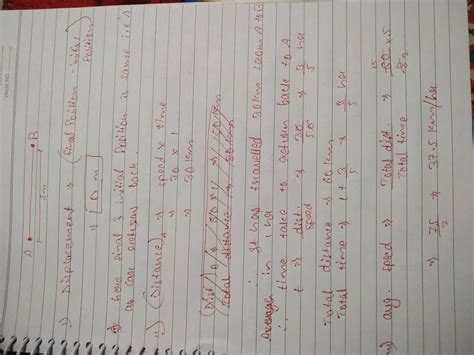 A B
5 m
i) Displacement → (Final Position - initial Position)
→ 0 m
here final & initial Position is same i.e. A
as car returns back.
ii) (Distance)A → speed × time
→ 30 × 1
→ 30 km
∴ It has travelled 30km from A to B
in 1 hr
∴ time take to return back to A
t → dist. / speed → 30 / 50 → 3 / 5 hr
Total distance → 60 km
Total time → 1 + 3 / 5 → 8 / 5 hr
avg. speed → Total dist. / Total time → 60 × 5 / 8
→ 75 / 2 → 37.5 km/hr